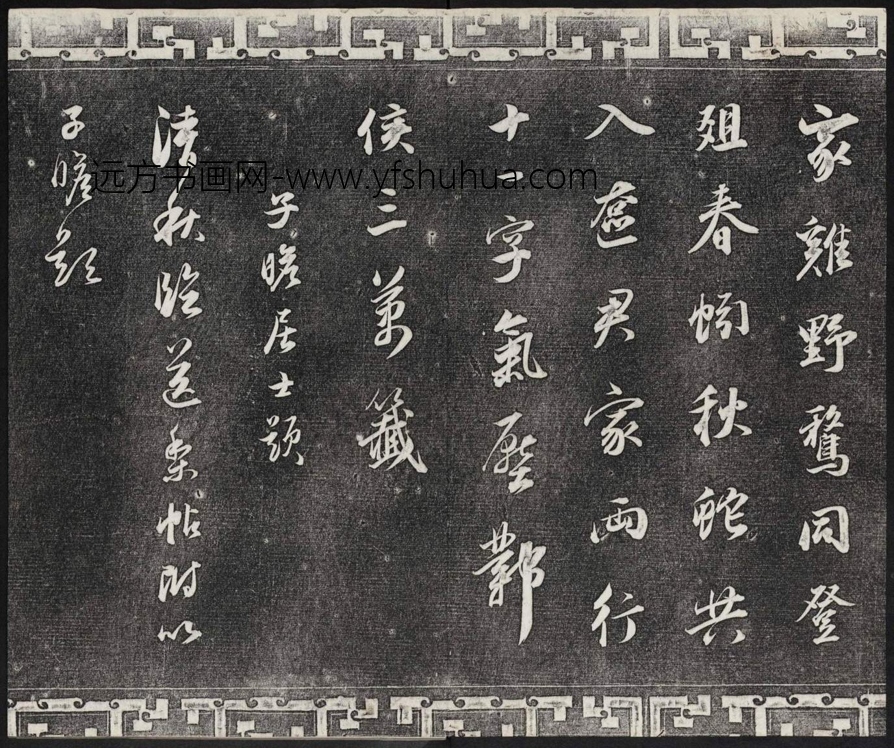 家雞野鶩同登
俎春蚓秋蛇共
入奩君家兩行
十二字氣壓鄴
侯三萬籤
子瞻居士題
清秋臨送梨帖附以
子瞻題
远方书画网-www.yfshuhua.com